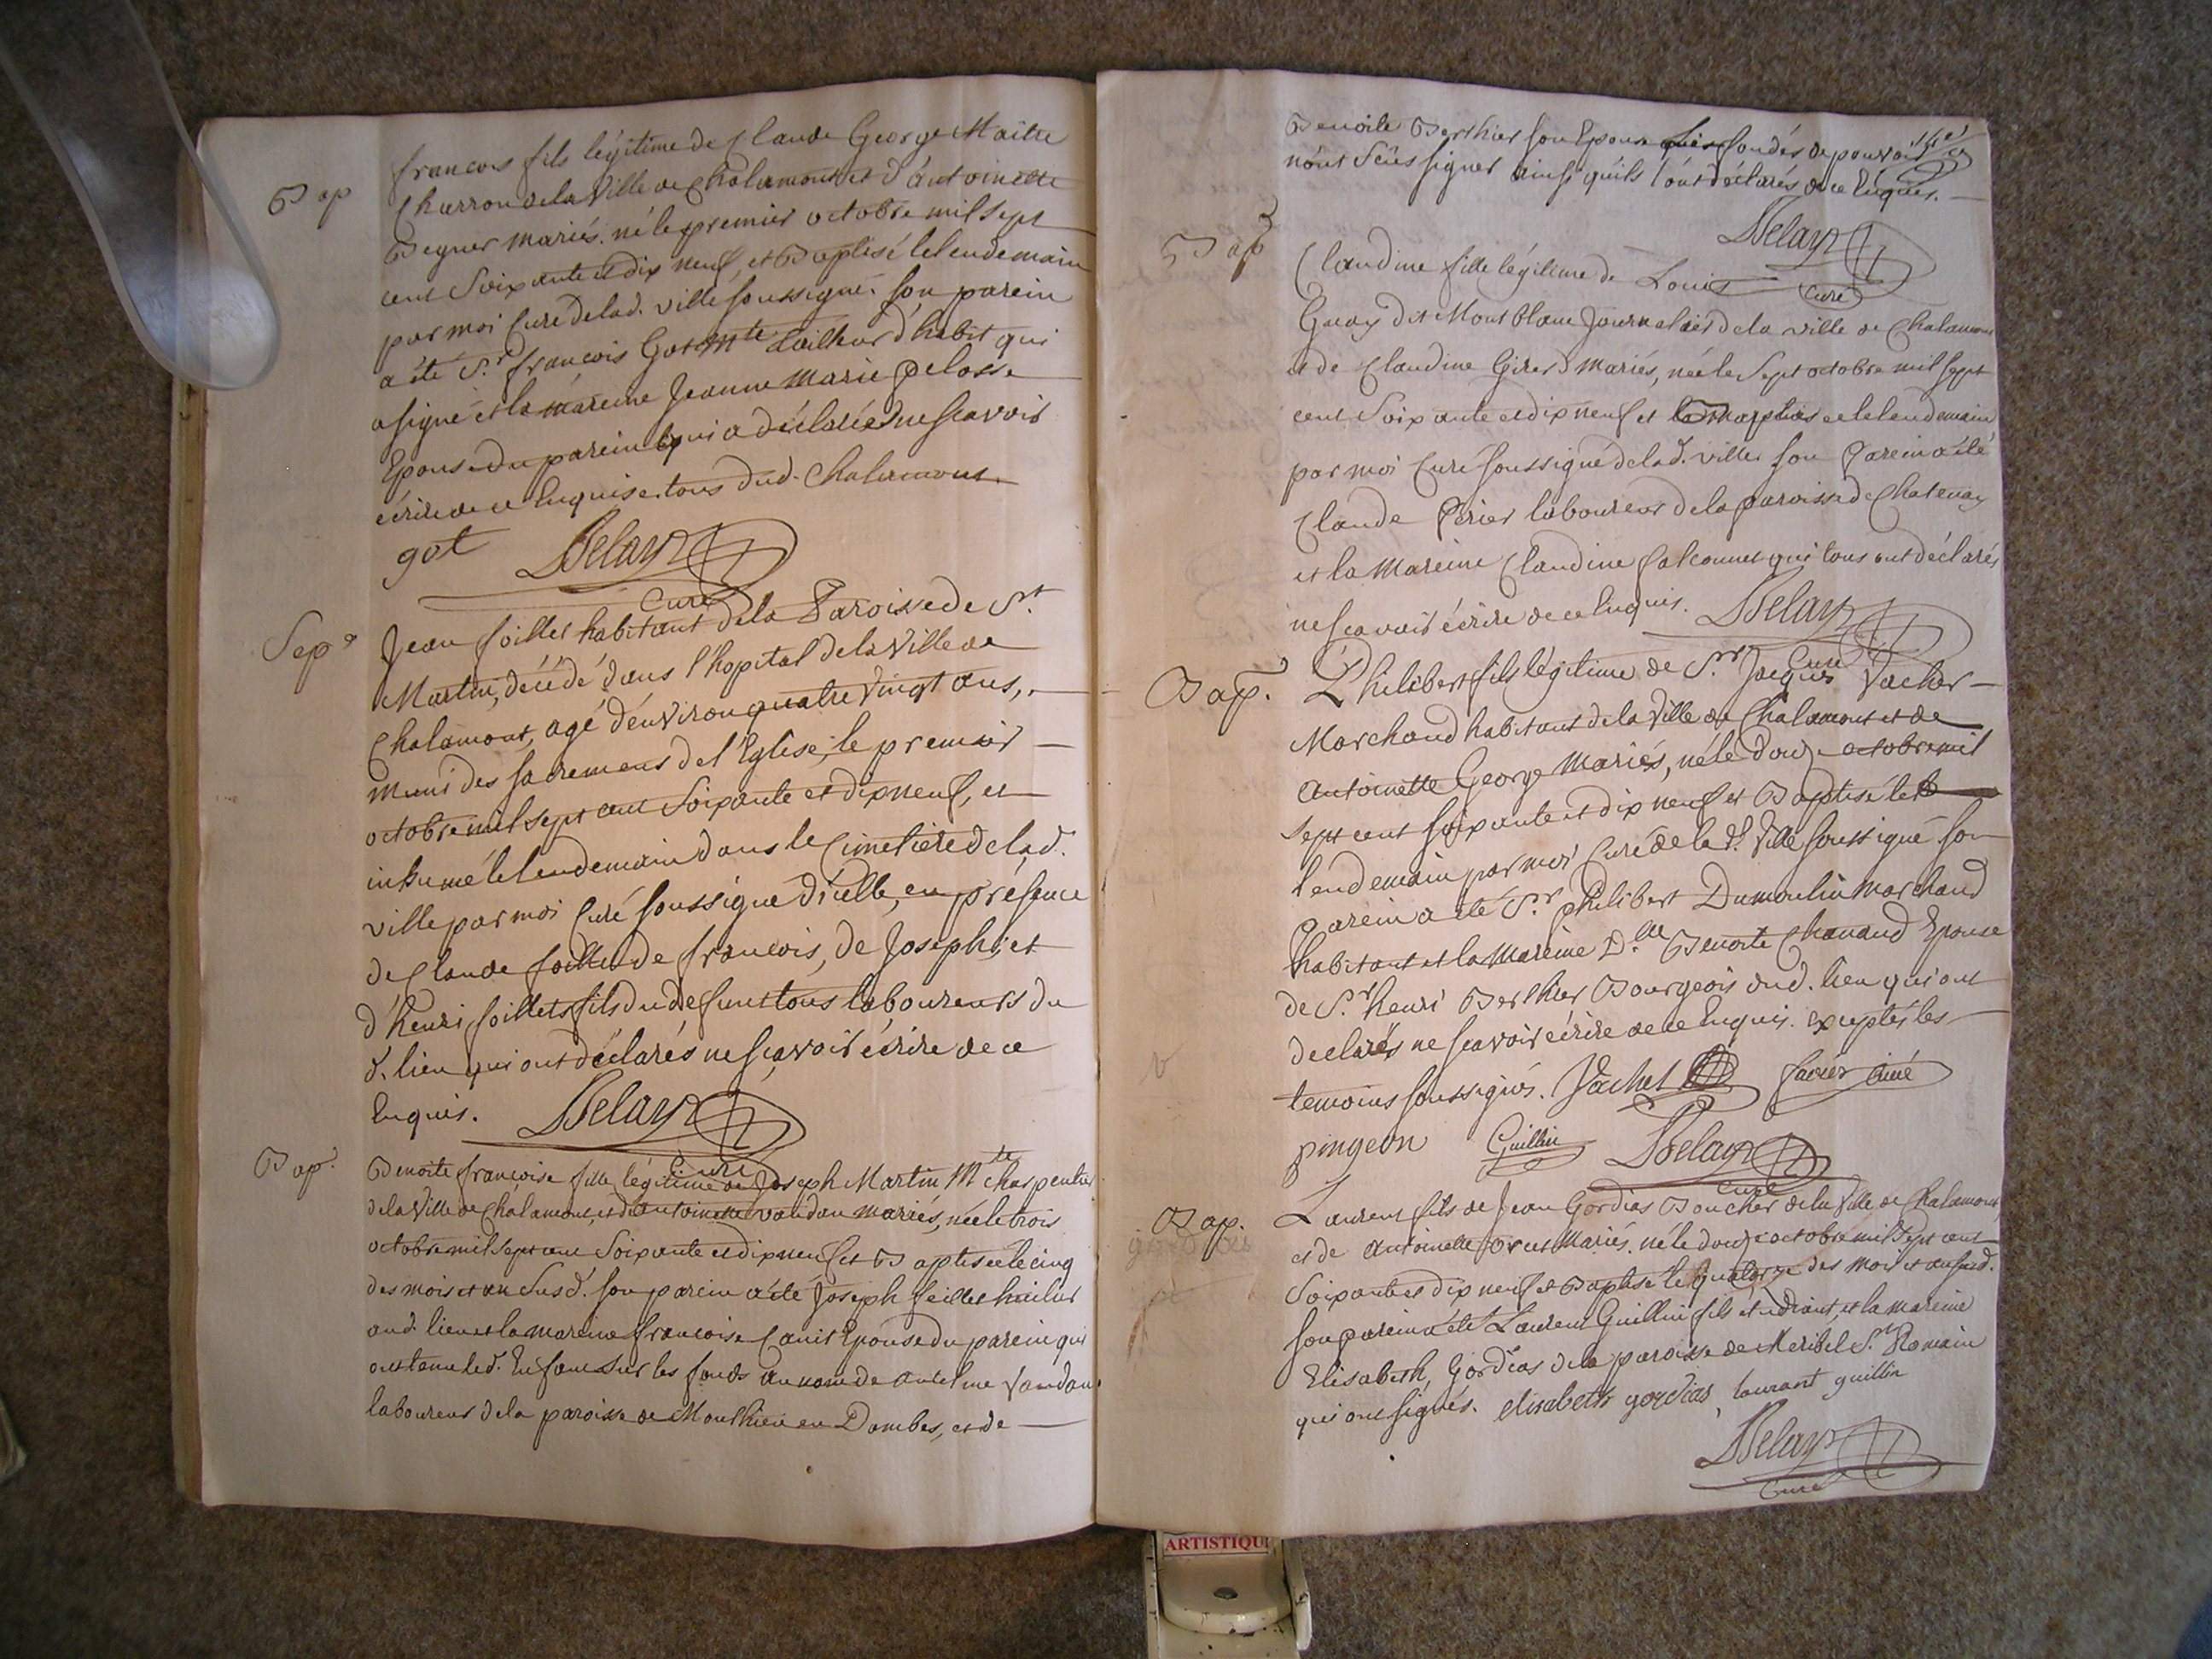 Bap
francois fils légitime de Claude George Maitre
Charron de la Ville de Chalamont et d'antoinette
Beguer mariés. né le premier octobre mil sept
cent Soixante et dix neuf, et Baptisé le lendemain
par moi Curé de lad. ville soussigné. son parein
a été S.r françois Got Mtre tailleur d'habit qui
a signé et la mareine Jeanne Marie pelosse
Epouse du parein qui a déclarée ne scavoir
écrire de ce Enquise. tous dud. Chalamont.
got Delay
Curé
Sep.
Jean foillet habitant de la Paroisse de St.
Martin, décédé dans l'hopital de la Ville de
Chalamont, agé d'environ quatre vingt ans,
muni des sacremens de l'Eglise, le premier
octobre mil sept cent Soixante et dix neuf, et
inhumé le lendemain dans le Cimetière de lad.
ville par moi Curé soussigné d'icelle, en présence
de Claude foillet de francois, de Joseph, et
d'henri foillets fils du defunt tous laboureurs du
d. lieu qui ont déclarés ne scavoir écrire de ce
Enquis. Delay
Curé
Bap.
Benoite françoise fille légitime de Joseph Martin Mtre charpentier
de la Ville de Chalamont, et d'antoinette vaudan mariés, née le trois
octobre mil sept cent Soixante et dix neuf et Baptisée le cinq
des mois et an Susd. son parein a été Joseph feillet
aud. lieu et la mareine francoise Epouse du parein qui
ont tenu led. Enfant sur les fonds au nom de antelme Vaudan
laboureur de la paroisse de Monthieu en Dombes, et de
Benoite Berthier son Epouse fondés de pouvoir
n'ont Scües signer ainsi qu'ils l'ont déclarés de ce Enquis.
Delay
Curé
Bap
Claudine fille légitime de Louis
Guay dit Mont blanc Journalier de la ville de Chalamont
et de Claudine Girer mariés, née le Sept octobre mil sept
cent Soixante et dix neuf et le lendemain
par moi Curé soussigné de lad. ville. son Parein a été
Claude Périer laboureur de la paroisse de Chatenay
et la Mareine Claudine falconnet qui tous ont déclarés
ne scavoir écrire de ce Enquis. Delay
Curé
Bap.
Philibert fils légitime de S.r Jacques Vacher
Marchand habitant de la Ville de Chalamont et de
antoinette George Mariés, né le douze octobre mil
sept cent soixante et dix neuf et Baptisé le
lendemain par moi Curé de la d. Ville soussigné son
Parein a été S.r philibert Dumoulin marchand
habitant et la Mareine D.lle Benoite Chanaud Epouse
de S.r henri Berthier Bourgeois dud. lieu qui ont
declarés ne scavoir écrire de ce Enquis. exceptés les
temoins soussignés. Vachet favier ainé
pingeon Guillin Delay
Curé
Bap.
Laurent fils de Jean Gordias Boucher de la Ville de Chalamont,
et de antoinette orcet Mariés. né le douze octobre mil Sept cent
Soixante et dix neuf et Baptisé le quatorze des mois et an Susd.
son parein a été Laurent Guillin fils etudiant, et la mareine
Elisabeth, Gordias de la paroisse de Meribel S.t Romain
qui ont signés. elisabeth gordias, laurant guillin
Delay
Curé
ARTISTIQU